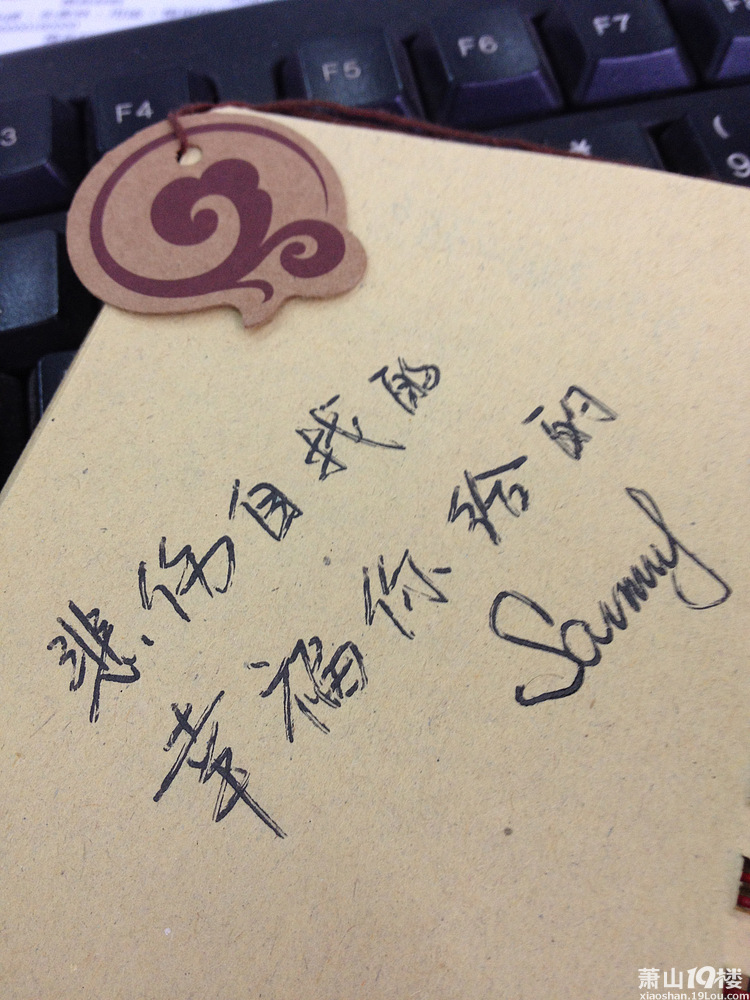 F4
F5
F6
F7
3
*
(
9
悲伤自找的
幸福你给的
Sammy
萧山19楼
xiaoshan.19Lou.com